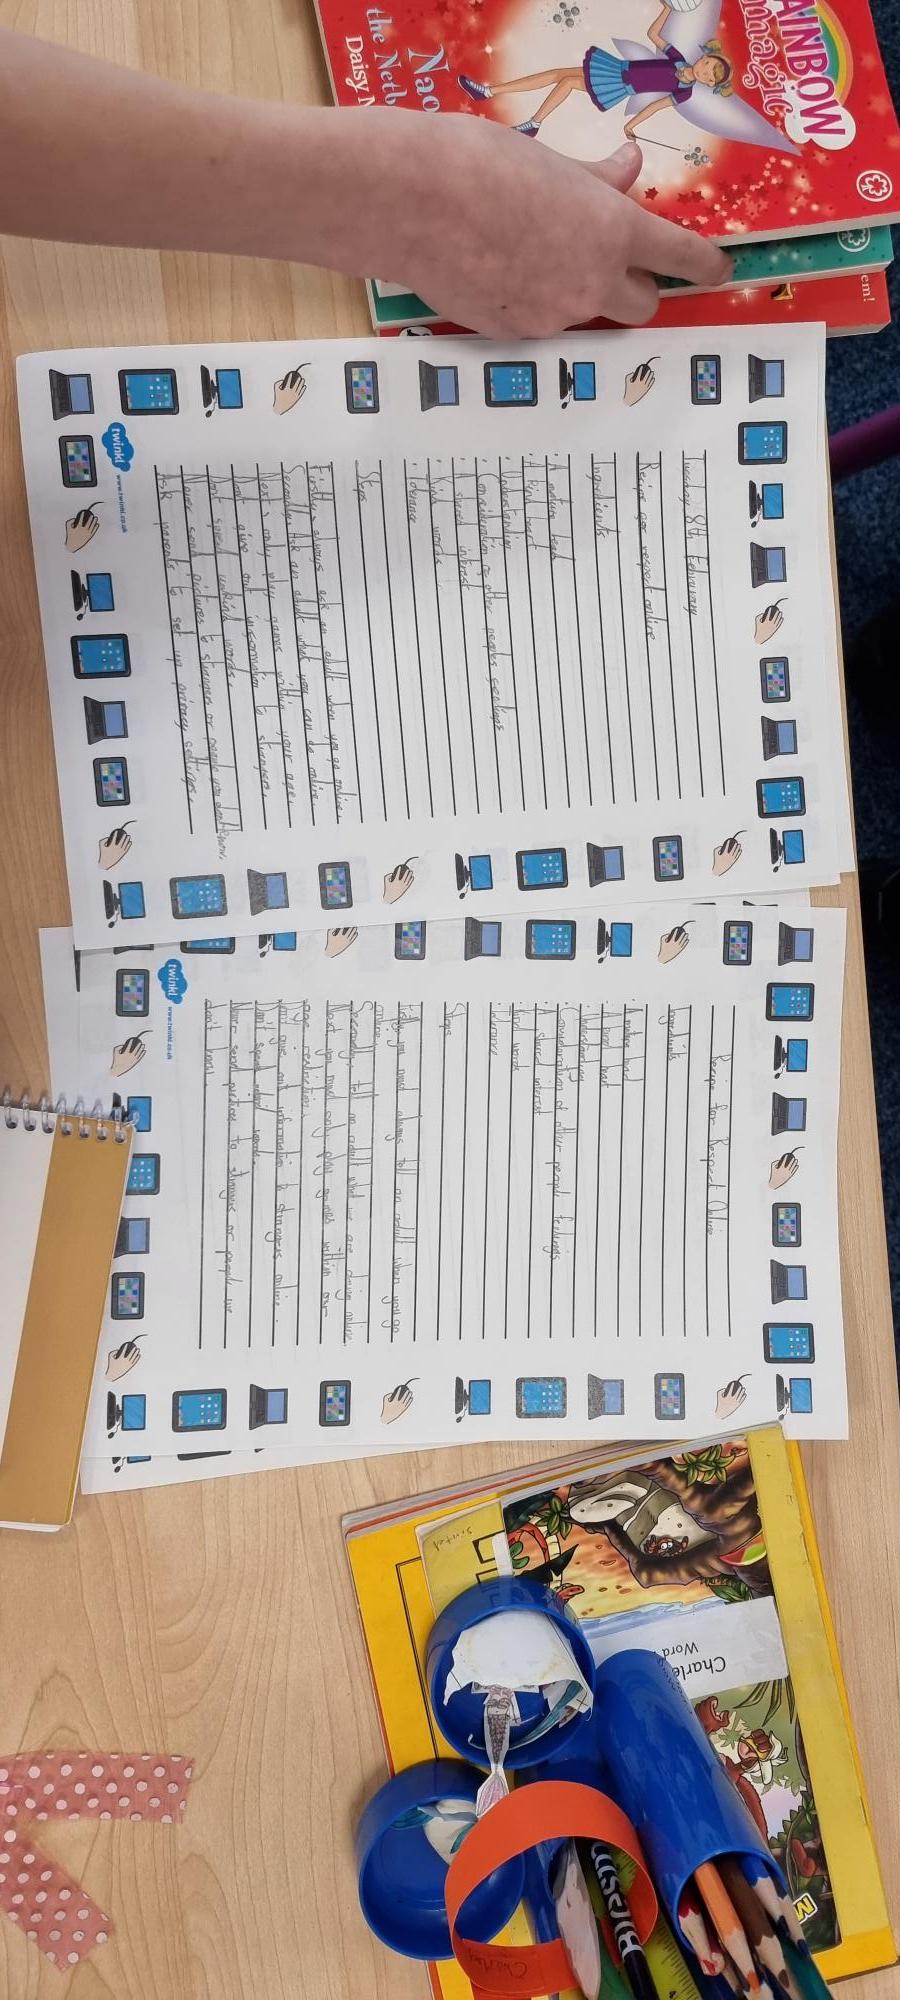 RAINBOW
magic
Nao
the Neth
Daisy M
em!
Tuesday 8th February
Recipe for respect online
Ingredients
. A mature head
. A kind heart
. Understanding
. Consideration for other peoples feelings
. A shared interest
. Kind words
. Tolerance
Steps
Firstly, always ask an adult when you go online.
Secondly, Ask an adult what you can do online.
Next, only play games within your age.
Dont give out information to strangers.
Dont spread unkind words.
Never send pictures to strangers or people you dont know.
Ask parents to set up privacy settings.
twinkl
www.twinkl.co.uk
Recipe for Respect Online
Ingredients
. A mature head
. A kind heart
. Understanding
. Consideration of other people feelings
. A shared interest
. Kind words
. Tolerance
Steps
you must always tell an adult when you go
online.
Secondly, tell an adult what we are doing online.
Next you must only play games within our
age
give out information to strangers online.
Don't spread unkind words.
Never send pictures to strangers or people we
don't trust.
twinkl
www.twinkl.co.uk
Charle
Word